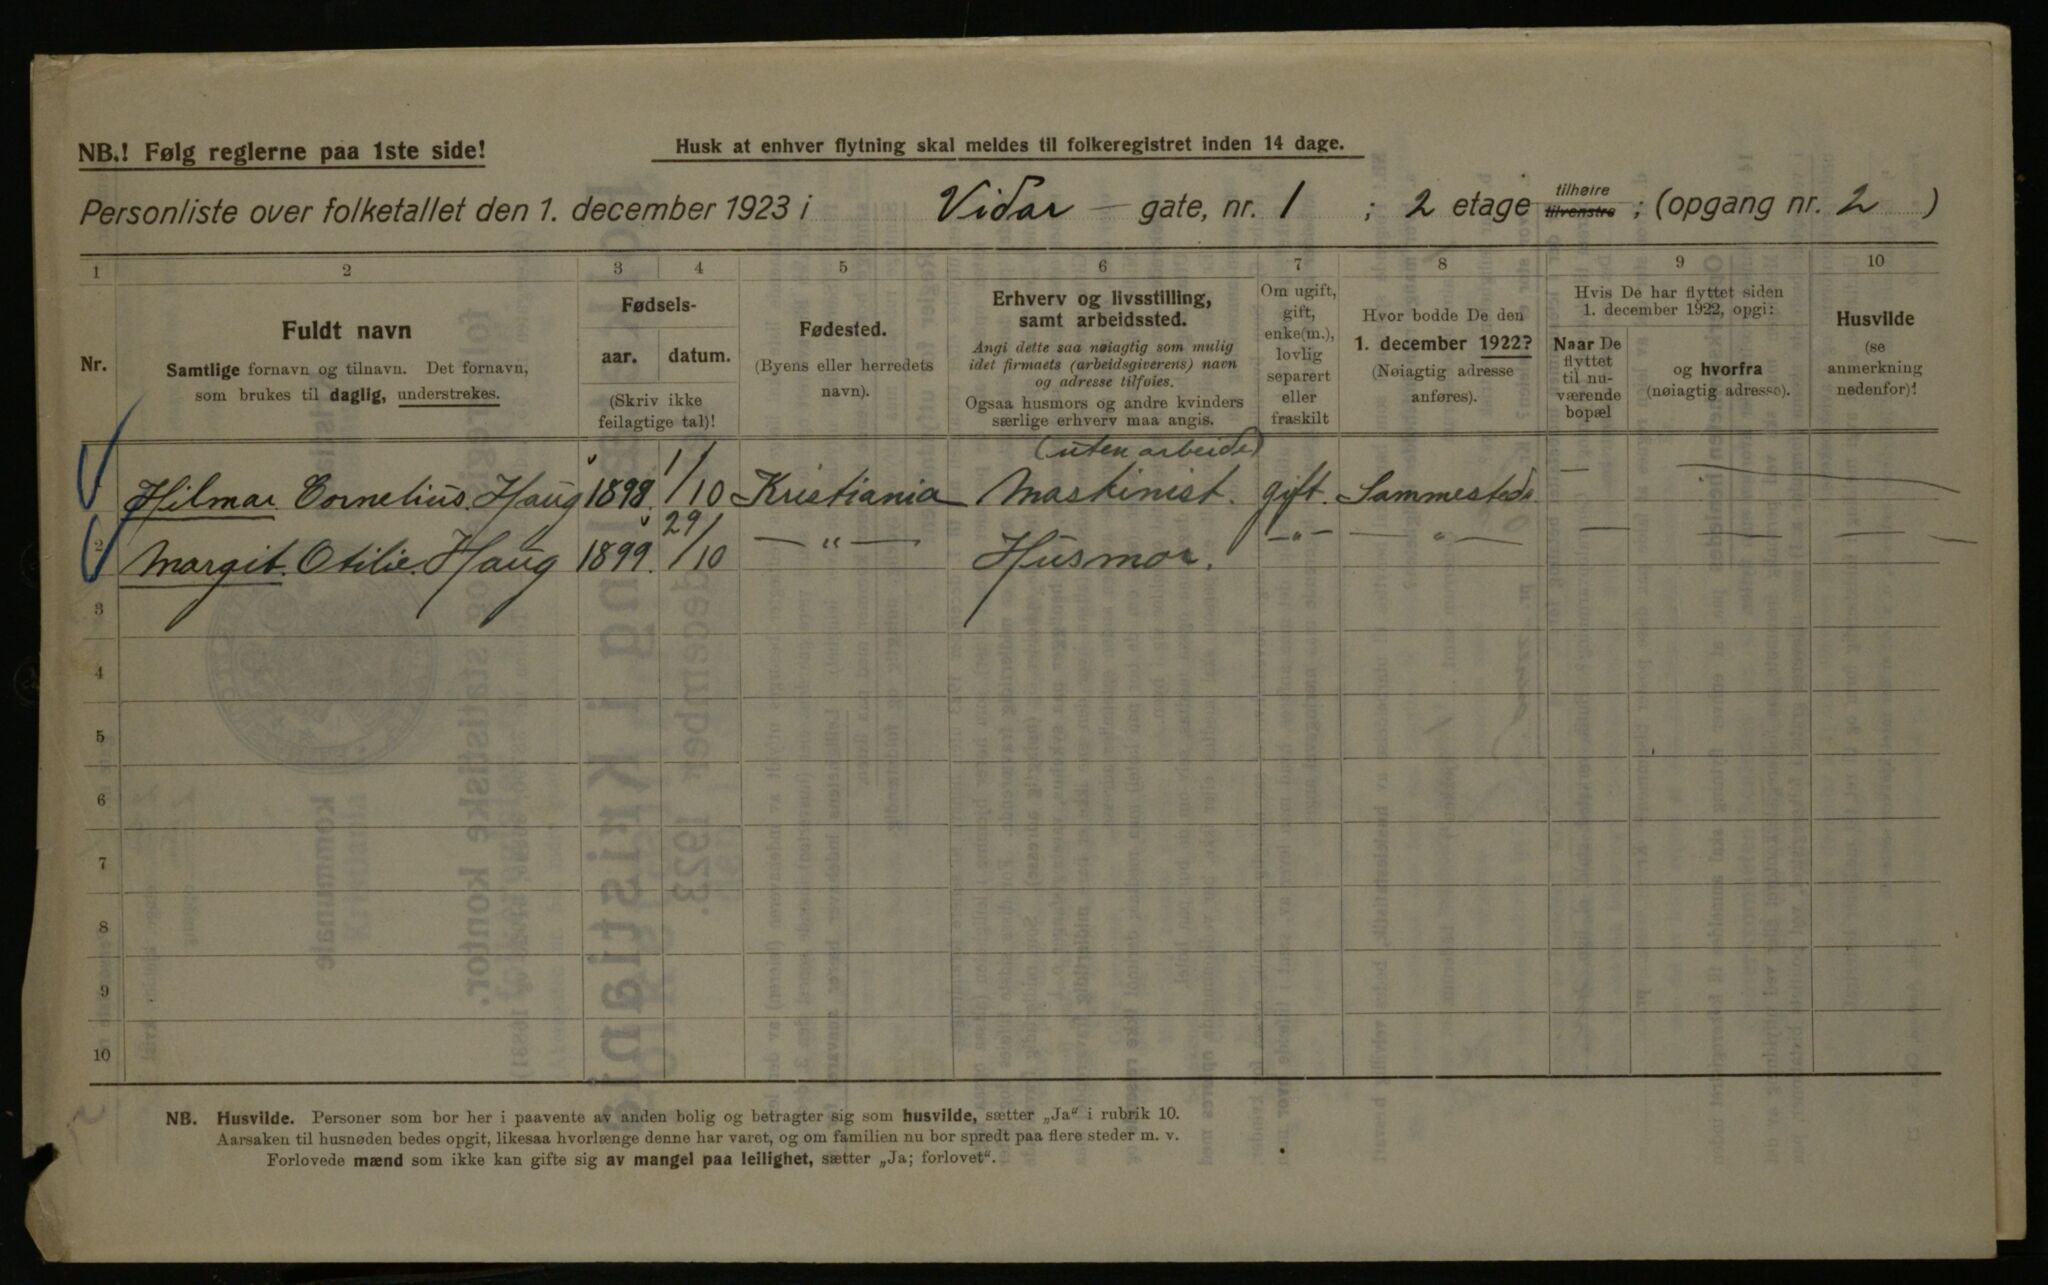 NB.! Følg reglerne paa 1ste side!
Husk at enhver flytning skal meldes til folkeregistret inden 14 dage.
Personliste over folketallet den 1. december 1923 i Vidar — gate, nr. 1 ; 2 etage tilhøire tilvenstre ; (opgang nr. 2 )
1 2 3 4 5 6 7 8 9 10
Nr.
Fuldt navn
Samtlige fornavn og tilnavn. Det fornavn,
som brukes til daglig, understrekes.
Fødsels-
aar. datum.
(Skriv ikke
feilagtige tal)!
Fødested.
(Byens eller herredets
navn).
Erhverv og livsstilling,
samt arbeidssted.
Angi dette saa nøiagtig som mulig
idet firmaets (arbeidsgiverens) navn
og adresse tilføies.
Ogsaa husmors og andre kvinders
særlige erhverv maa angis.
Om ugift,
gift,
enke(m.),
lovlig
separert
eller
fraskilt
Hvor bodde De den
1. december 1922?
(Nøiagtig adresse
anføres).
Hvis De har flyttet siden
1. december 1922, opgi:
Naar De
flyttet
til nu-
værende
bopæl
og hvorfra
(nøiagtig adresse).
Husvilde
(se
anmerkning
nedenfor)!
(uten arbeide)
Hilmar Cornelius. Haug 1898. 1/10 Kristiania Maskinist. gift. Sammesteds — —
2 Margit. Otilie. Haug 1899. 29/10 — " — Husmor. — " — — " — — — —
3
4
5
6
7
8
9
10
NB. Husvilde. Personer som bor her i paavente av anden bolig og betragter sig som husvilde, sætter „Ja" i rubrik 10.
Aarsaken til husnøden bedes opgit, likesaa hvorlænge denne har varet, og om familien nu bor spredt paa flere steder m. v.
Forlovede mænd som ikke kan gifte sig av mangel paa leilighet, sætter „Ja; forlovet".